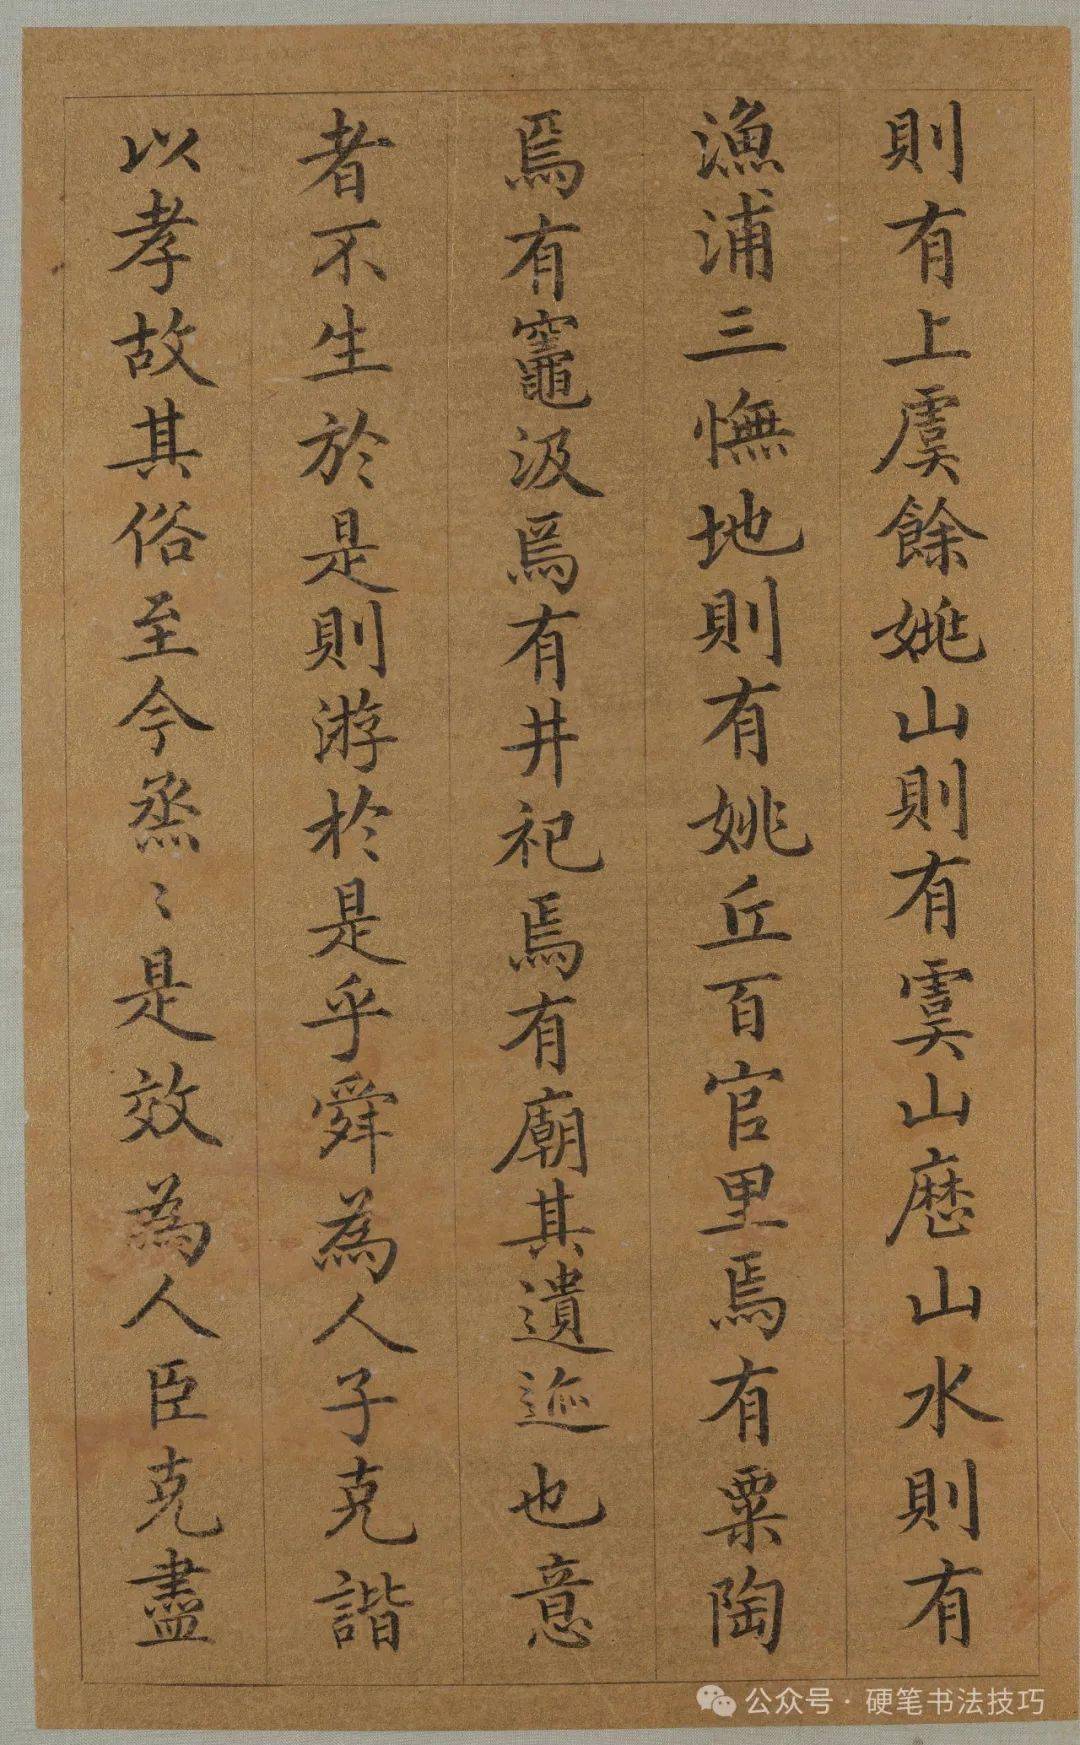 則有上虞餘姚山則有虞山厯山水則有
漁浦三憮地則有姚丘百官里焉有粟陶
焉有竈汲焉有井祀焉有廟其遺迹也意
者不生於是則游於是乎舜為人子克諧
以孝故其俗至今烝〻是效為人臣克盡
公众号·硬笔书法技巧